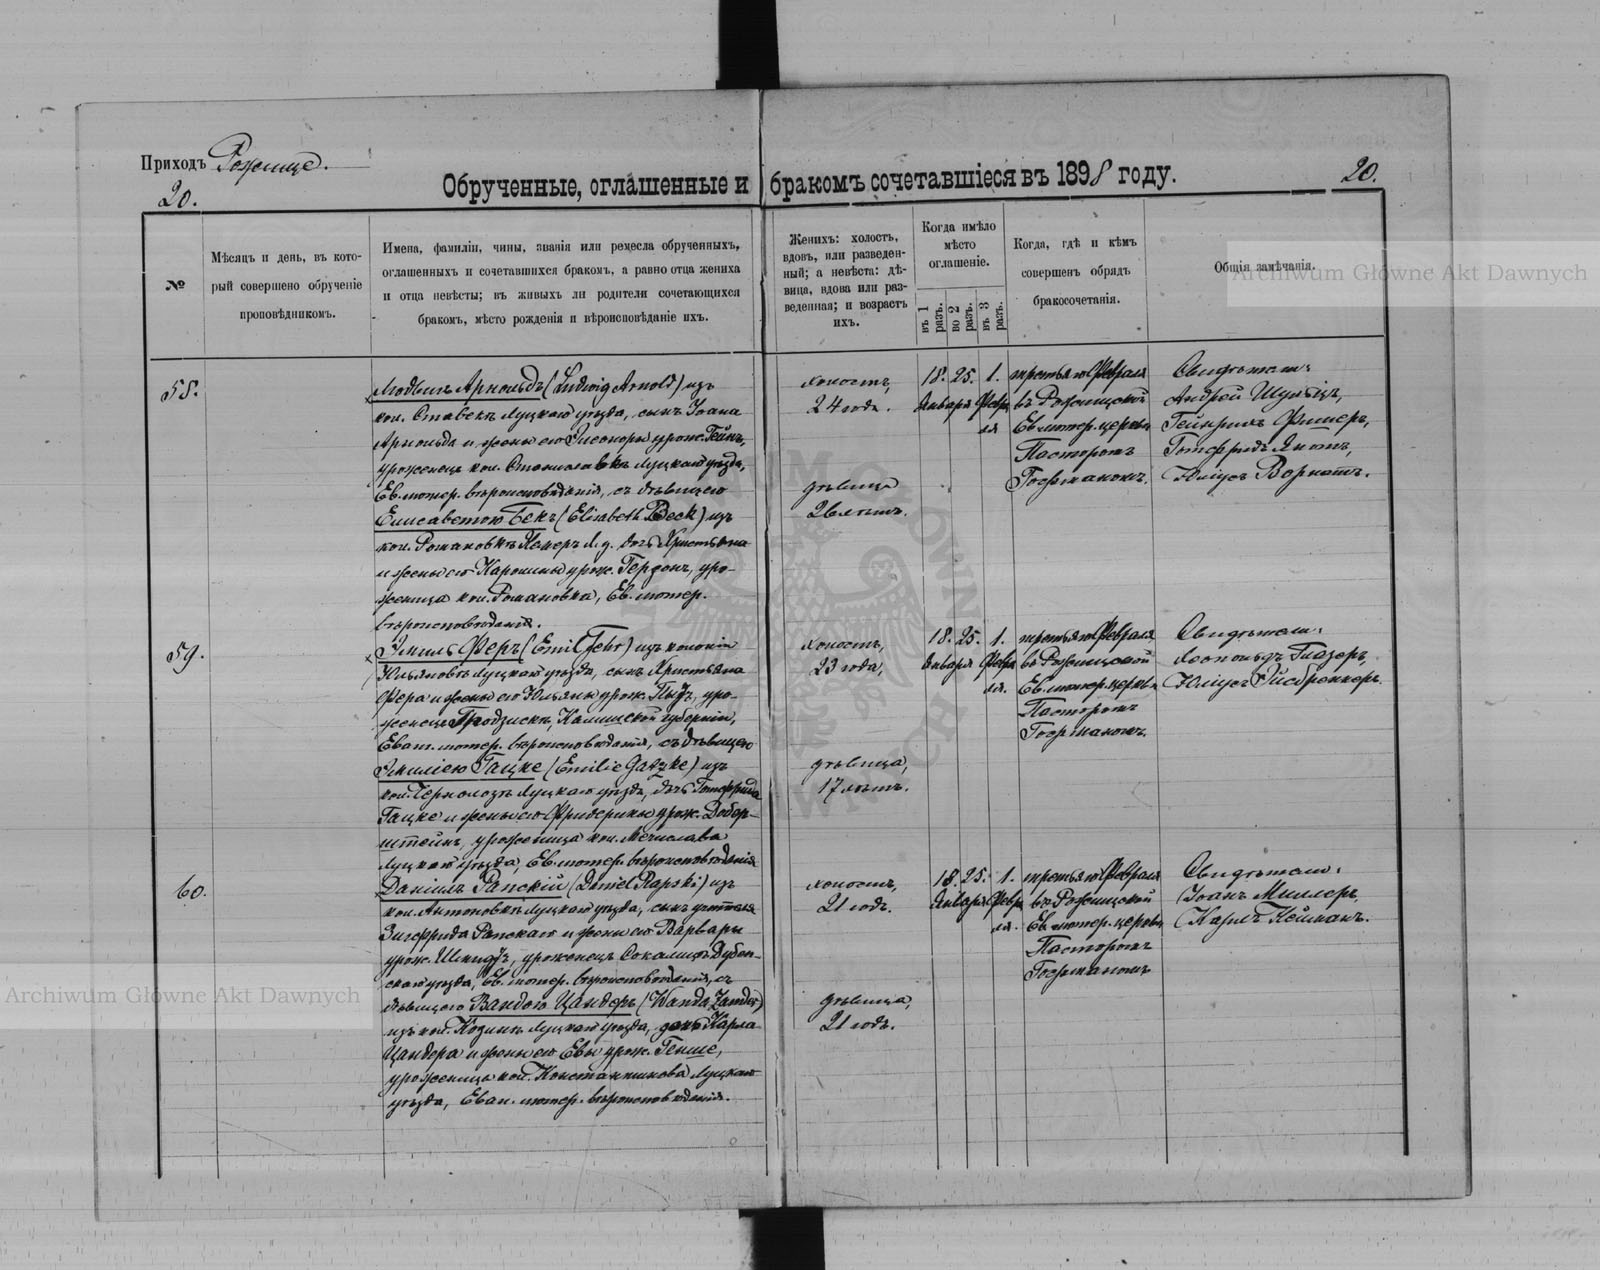 Приходъ Рожище.
20.
Обрученные, оглашенные и бракомъ сочетавшіеся въ 1898 году.
20.
№
Мѣсяцъ и день, въ кото-
рый совершено обрученіе
проповѣдникомъ.
Имена, фамиліи, чины, званія или ремесла обрученныхъ,
оглашенныхъ и сочетавшихся бракомъ, а равно отца жениха
и отца невѣсты; въ живыхъ ли родители сочетающихся
бракомъ, мѣсто рожденія и вѣроисповѣданіе ихъ.
Женихъ: холостъ,
вдовъ, или разведен-
ный; а невѣста: дѣ-
вица, вдова или раз-
веденная; и возрастъ
ихъ.
Когда имѣло
мѣсто
оглашеніе.
въ 1 разъ.
во 2 разъ.
въ 3 разъ.
Когда, гдѣ и кѣмъ
совершенъ обрядъ
бракосочетанія.
Общія замѣчанія.
Archiwum Główne Akt Dawnych
58.
Людвигъ Арнольдъ (Ludwig Arnold) изъ
кол. Ставекъ Луцкаго уѣзда, сынъ Іоана
Арнольда и жены его Элеоноры урож. Гейнъ,
уроженецъ кол. Станиславкѣ Луцкаго уѣзда,
Ев. лютер. вѣроисповѣданія, съ дѣвицею
Елисаветою Бекъ (Elisabeth Beck) изъ
кол. Романовкѣ дочь Христіана
и жены его Каролины урож. уро-
женица кол. Романовка, Ев. лютер.
вѣроисповѣданія.
холостъ,
24 года.
дѣвица
26 лѣтъ.
18. 25. 1.
Января Февра
ля
третьяго Февраля
въ Рожищской
Ев. лютер. церкви
Пасторомъ
Гофманомъ.
Свидѣтели:
Андрей Шульцъ,
Гейнрихъ Фишеръ,
Готфридъ
Юліусъ Ворнатъ.
59.
Эмиль Феръ (Emil Fehr) изъ колоніи
Юльяновкѣ Луцкаго уѣзда, сынъ Христьяна
Фера и жены его Юльяны урож. уро-
женецъ Калишской губерніи,
Еван. лютер. вѣроисповѣданія, съ дѣвицею
Эмиліею Гацке (Emilie Gatzke) изъ
кол. Луцкаго уѣзда, дочь Готфрида
Гацке и жены его Фридерики урож. Добер-
штейнъ, уроженица кол. Мечислава
Луцкаго уѣзда, Ев. лютер. вѣроисповѣданія
холостъ,
23 года,
дѣвица,
17 лѣтъ.
18. 25. 1.
Января Февра
ля.
третьяго Февраля
въ Рожищской
Ев. лютер. церкви
Пасторомъ
Гофманомъ.
Свидѣтели:
Леопольдъ Глазеръ,
Юліусъ Гисбреннеръ.
60.
Даніилъ Рапскій (Daniel Rapski) изъ
кол. Антоновкѣ Луцкаго уѣзда, сынъ учителя
Зигфрида Рапскаго и жены его Варвары
урож. Шмидтъ, уроженецъ Дубен-
скаго уѣзда, Ев. лютер. вѣроисповѣданія, съ
дѣвицею Вандою Цандеръ (Wanda Zander)
изъ кол. Луцкаго уѣзда, дочь Карла
Цандера и жены его Евы урож. Генше,
уроженица кол. Константинова Луцкаго
уѣзда, Еван. лютер. вѣроисповѣданія.
холостъ,
21 годъ.
дѣвица,
21 годъ.
18. 25. 1.
Января Февра
ля.
третьяго Февраля
въ Рожищской
Ев. лютер. церкви
Пасторомъ
Гофманомъ
Свидѣтели:
Іоанъ Миллеръ,
Карлъ Нейманъ.
Archiwum Główne Akt Dawnych